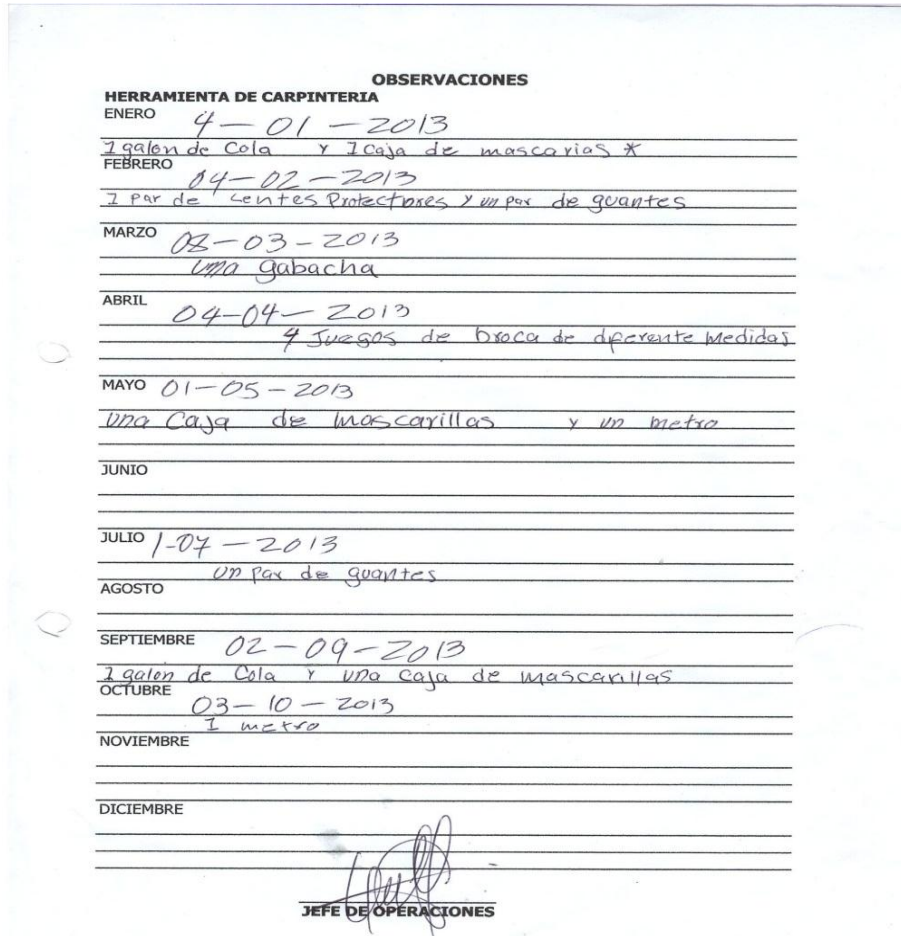 OBSERVACIONES
HERRAMIENTA DE CARPINTERIA
ENERO 4-01-2013
1 galon de Cola Y 1 caja de mascarias *
FEBRERO
04-02-2013
1 Par de Lentes Protectores y un par de guantes
MARZO 08-03-2013
una gabacha
ABRIL
04-04-2013
4 Juegos de broca de diferente Medidas
MAYO 01-05-2013
una Caja de Mascarillas y un metro
JUNIO
JULIO 1-07-2013
un Par de guantes
AGOSTO
SEPTIEMBRE 02-09-2013
1 galon de Cola Y una caja de mascarillas
OCTUBRE
03-10-2013
1 metro
NOVIEMBRE
DICIEMBRE
JEFE DE OPERACIONES